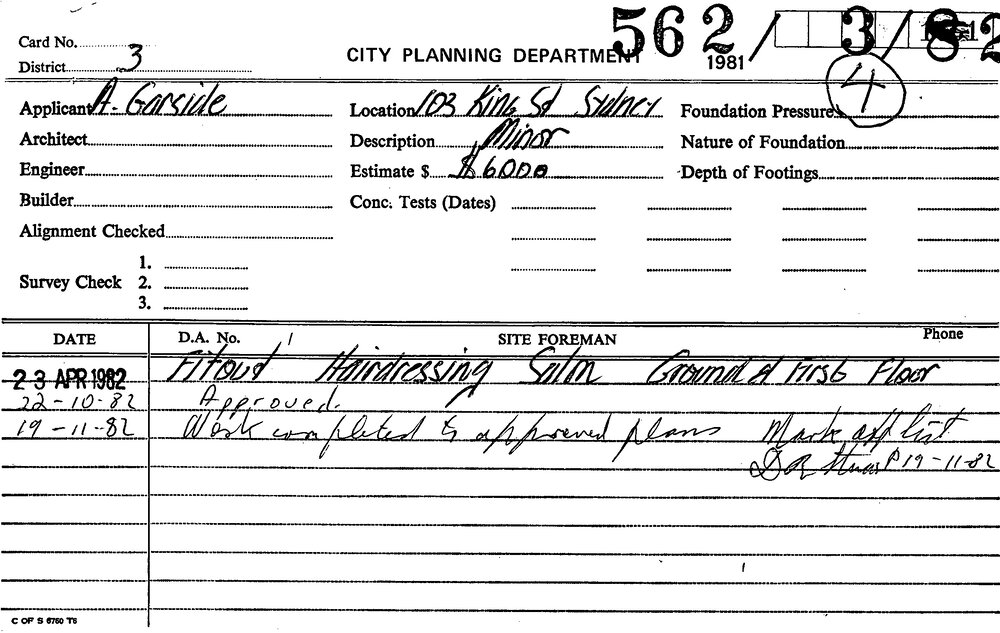 562/ 3/82
Card No.
District 3
CITY PLANNING DEPARTMENT 1981
4
Applicant A. Garside
Location 103 King St Sydney
Foundation Pressures
Architect
Description Minor
Nature of Foundation
Engineer
Estimate $ $6000
Depth of Footings
Builder
Conc. Tests (Dates)
Alignment Checked
Survey Check 1.
2.
3.
DATE D.A. No. SITE FOREMAN Phone
23 APR 1982 Fitout Hairdressing Salon Ground & First Floor
22-10-82 Approved.
19-11-82 Work completed to approved plans Mark off list
19-11-82
C OF S 6750 T5